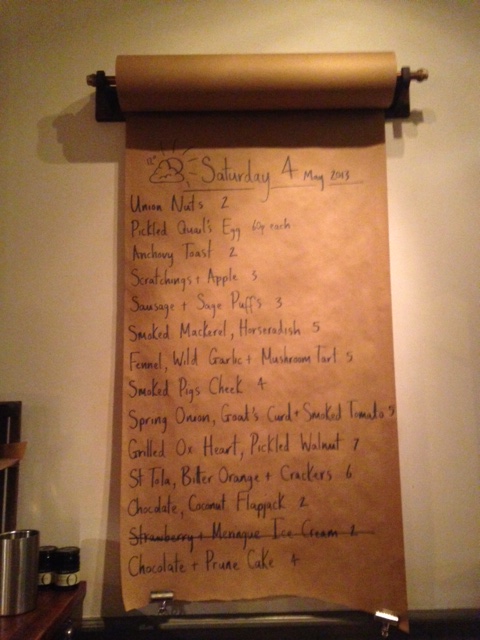 Saturday 4 May 2013
Union Nuts 2
Pickled Quail's Egg 60p each
Anchovy Toast 2
Scratchings + Apple 3
Sausage + Sage Puffs 3
Smoked Mackerel, Horseradish 5
Fennel, Wild Garlic + Mushroom Tart 5
Smoked Pigs Cheek 4
Spring Onion, Goat's Curd + Smoked Tomato 5
Grilled Ox Heart, Pickled Walnut 7
St Tola, Bitter Orange + Crackers 6
Chocolate, Coconut Flapjack 2
Strawberry + Meringue Ice Cream 2
Chocolate + Prune Cake 4